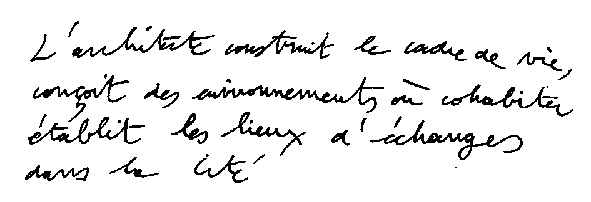 L'architecte construit le cadre de vie,
conçoit des environnements où cohabiter
établit les lieux d'échanges
dans la cité